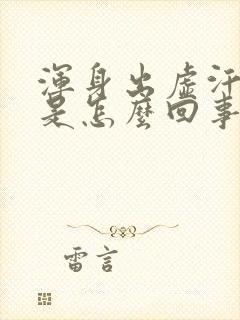 渾身出虛汗
是怎麼回事
雷言